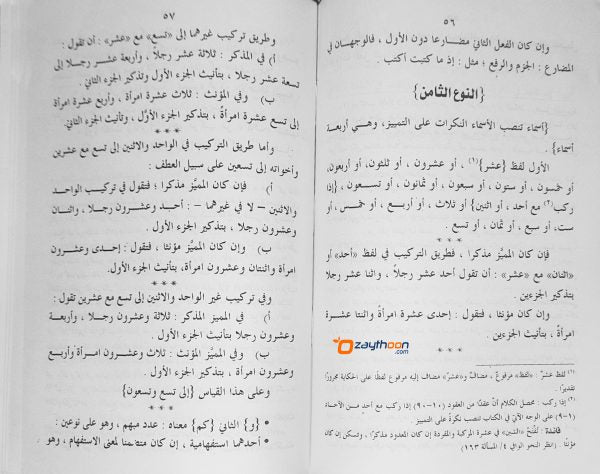 ٥٦
وإن كان الفعل الثاني مضارعا دون الأول، فالوجهان في
المضارع: الجزم والرفع؛ مثل: إذ ما كتبت أكتب.
{النوع الثامن}
{أسماء تنصب الأسماء النكرات على التمييز، وهي أربعة
أسماء}.
الأول لفظ {عشر}(١)، أو عشرون، أو ثلثون، أو أربعون،
أو خمسون، أو ستون، أو سبعون، أو ثمانون، أو تسعون، {إذا
ركب(٢) مع أحد، أو اثنين} أو ثلاث، أو أربع، أو خمس، أو
ست، أو سبع، أو ثمان، أو تسع.
***
فإن كان المميز مذكرا، فطريق التركيب في لفظ «أحد» أو
«اثنان» مع «عشر»: أن تقول أحد عشر رجلاً، واثنا عشر رجلا
بتذكير الجزءين.
وإن كان مؤنثا، فتقول: إحدى عشرة امرأةً واثنتا عشرة
امرأةً، بتأنيث الجزءين.
***
Ozaythoon
.com
(١) لفظ عشر: «لفظ» مرفوعٌ، مضافٌ و«عشر» مضاف إليه مرفوع لفظًا على الحكاية مجرورٌ
تقديرًا.
(٢) إذا ركب: محصل الكلام أنّ عقدًا من العقود (١٠-٩٠) إذا ركب مع أحد من الآحاد
(١-٩) على الوجه الآتي في الكتاب تنصب نكرةً على التمييز.
فائدة: تُفتَح «الشين» في عشرة المركبة والمفردة إن كان المعدود مذكرًا، وتسكن إن كان
مؤنثًا. (انظر النحو الوافي ٤/ المسألة ١٦٣)
٥٧
وطريق تركيب غيرهما إلى «تسع» مع «عشر»: أن تقول:
أ) في المذكر: ثلاثة عشر رجلاً، وأربعة عشر رجلا إلى
تسعة عشر رجلا، بتأنيث الجزء الأول وتذكير الجزء الثاني.
ب) وفي المؤنث: ثلاث عشرة امرأة، وأربع عشرة امرأة
إلى تسع عشرة امرأةً، بتذكير الجزء الأوَّل، وتأنيث الجزء الثاني.
***
وأما طريق التركيب في الواحد والاثنين إلى تسع مع عشرين
وأخواته إلى تسعين على سبيل العطف:
أ) فإن كان المميَّز مذكرا؛ فتقول في تركيب الواحد
والاثنين – لا في غيرهما –: أحد وعشرون رجلا، واثنان
وعشرون رجلا، بتذكير الجزء الأول.
ب) وإن كان المميز مؤنثا، فتقول: إحدى وعشرون
امرأة واثنتان وعشرون امرأة، بتأنيث الجزء الأول.
***
وفي تركيب غير الواحد والاثنين إلى تسع مع عشرين تقول:
أ) في المميز المذكر: ثلاثة وعشرون رجلا، وأربعة
وعشرون رجلا بتأنيث الجزء الأول.
ب) وفي المميز المؤنث: ثلاث وعشرون امرأة وأربع
وعشرون امرأة، بتذكير الجزء الأول.
وعلى هذا القياس {إلى تسع وتسعون}
***
• {و} الثاني {كم} معناه: عدد مبهم، وهو على نوعين:
• أحدهما استفهامية، إن كان متضمنا لمعنى الاستفهام، وهو